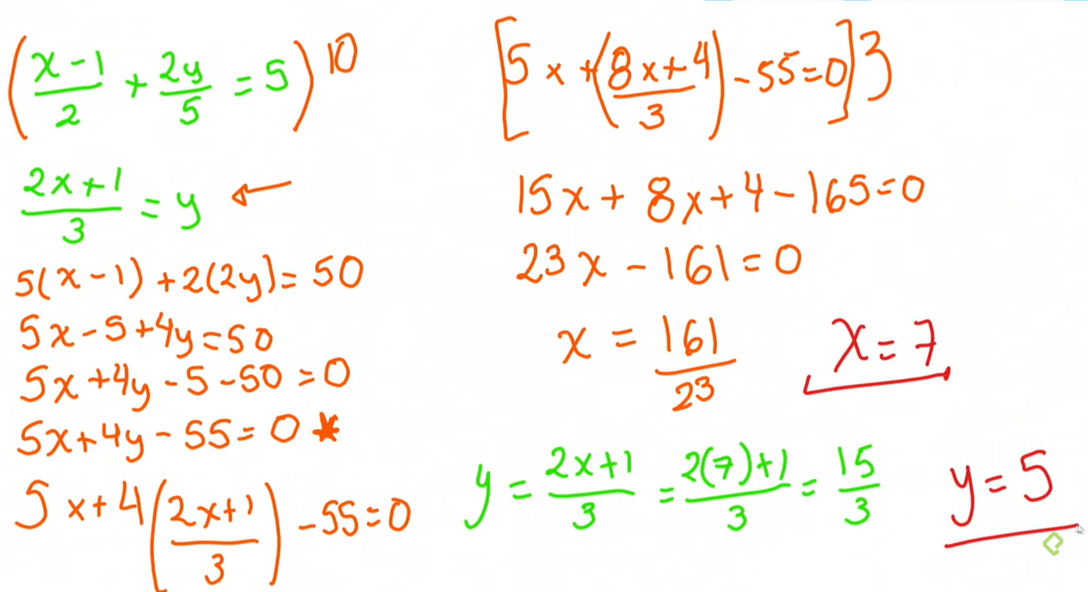 (x-1/2 + 2y/5 = 5)10
2x+1/3 = y ←
5(x-1)+2(2y)=50
5x-5+4y=50
5x+4y-5-50=0
5x+4y-55=0 *
5x+4(2x+1/3)-55=0
[5x+(8x+4/3)-55=0]3
15x+8x+4-165=0
23x-161=0
x = 161/23
x=7
y = 2x+1/3 = 2(7)+1/3 = 15/3
y=5